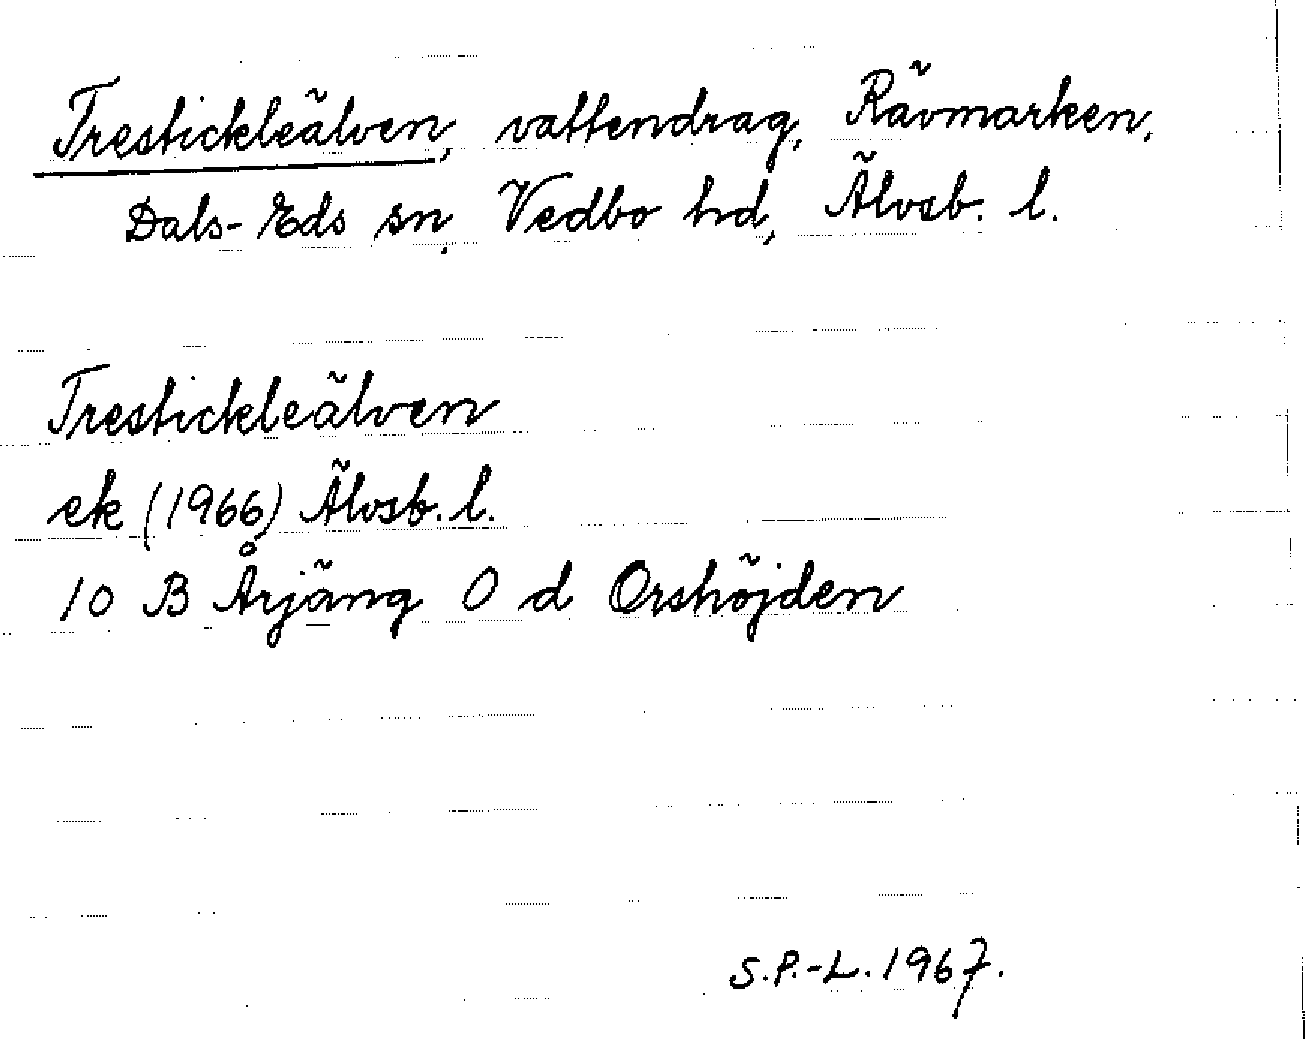 Trestickleälven, vattendrag, Rävmarken,
Dals-Eds sn, Vedbo hd, Älvsb. l.
Trestickleälven
ek (1966) Älvsb. l.
10 B Årjäng O d Orshöjden
S.P.-L. 1967.